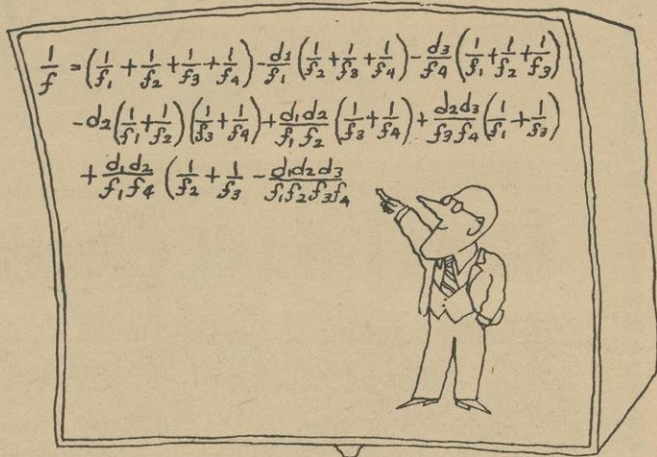 1/f = (1/f₁ + 1/f₂ + 1/f₃ + 1/f₄) - d₁/f₁ (1/f₂ + 1/f₃ + 1/f₄) - d₃/f₄ (1/f₁ + 1/f₂ + 1/f₃)
- d₂ (1/f₁ + 1/f₂) (1/f₃ + 1/f₄) + d₁d₂/f₁f₂ (1/f₃ + 1/f₄) + d₂d₃/f₃f₄ (1/f₁ + 1/f₂)
+ d₁d₂/f₁f₄ (1/f₂ + 1/f₃ - d₁d₂d₃/f₁f₂f₃f₄